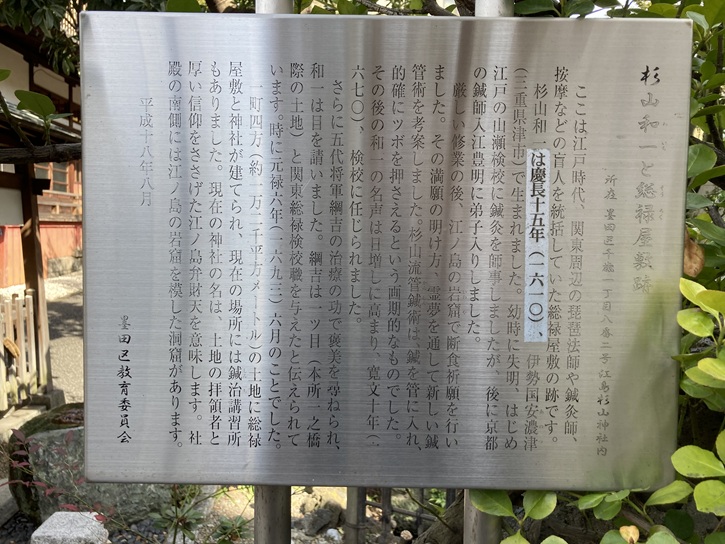 杉山和一と惣禄屋敷跡
所在 墨田区千歳一丁目八番二号 江島杉山神社内
ここは江戸時代、関東周辺の琵琶法師や鍼灸師、
按摩などの盲人を統括していた惣禄屋敷の跡です。
杉山和一は慶長十五年(一六一〇)、伊勢国安濃津
(三重県津市)で生まれました。幼時に失明、はじめ
江戸の山瀬検校に鍼灸を師事しましたが、後に京都
の鍼師入江豊明に弟子入りしました。
厳しい修業の後、江ノ島の岩窟で断食祈願を行い
ました。その満願の明け方、霊夢を通して新しい鍼
管術を考案しました。杉山流管鍼術は、鍼を管に入れ、
的確にツボを押さえるという画期的なものでした。
その後の和一の名声は日増しに高まり、寛文十年(一
六七〇)、検校に任じられました。
さらに五代将軍綱吉の治療の功で褒美を尋ねられ、
和一は目を請いました。綱吉は一ツ目(本所一之橋
際の土地)と関東総禄検校職を与えたと伝えられて
います。時に元禄六年(一六九三)六月のことでした。
一町四方(約一万二千平方メートル)の土地に総禄
屋敷と神社が建てられ、現在の場所には鍼治講習所
もありました。現在の神社の名は、土地の拝領者と
厚い信仰をささげた江ノ島弁財天を意味します。社
殿の南側には江ノ島の岩窟を模した洞窟があります。
平成十八年八月
墨田区教育委員会